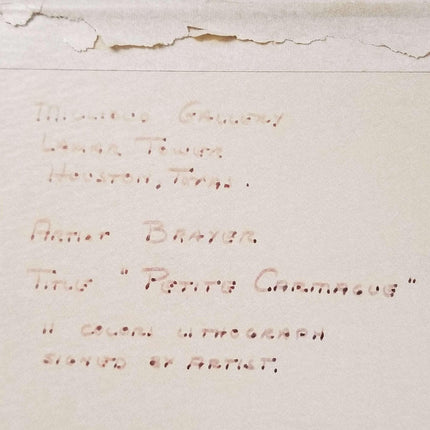 Gallery
Lamar Tower
Houston, Texas.
Artist Brayer
Title "Petite Carmague"
11 colors lithograph
signed by artist.